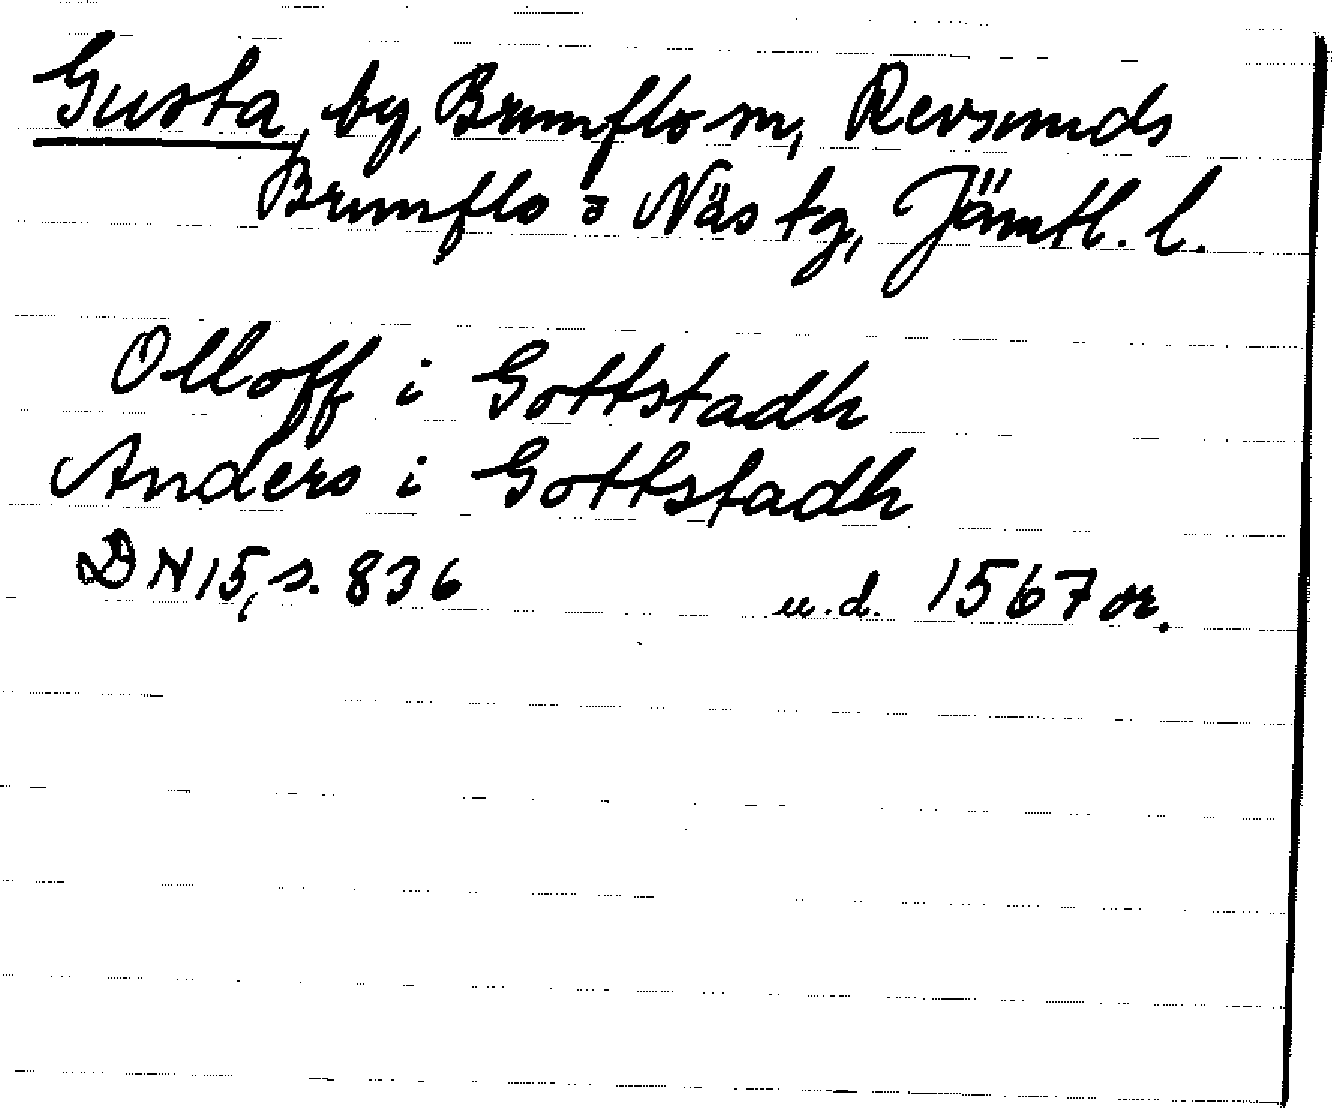 Gusta, by, Brunflo sn, Revsunds
Brunflo o Näs tg, Jämtl. l.
Olloff i Gottstadh
Anders i Gottstadh
DN 15, s. 836 u.d. 1567 or.